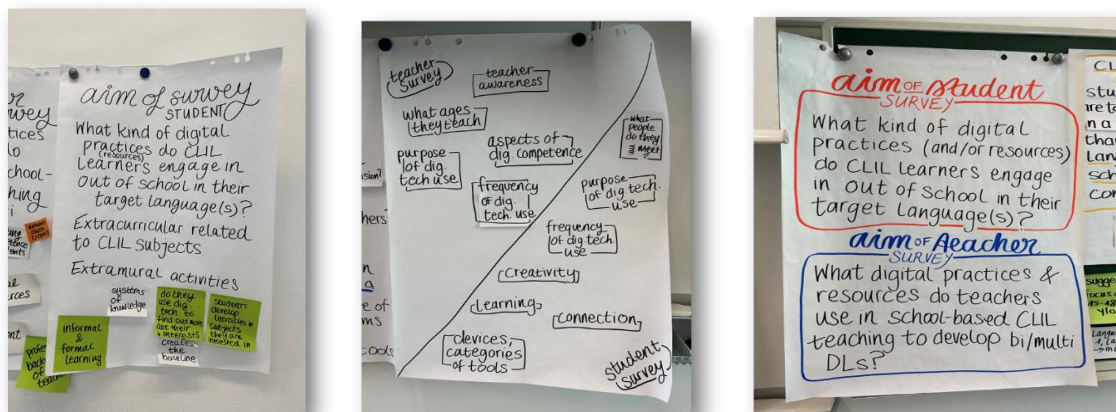 aim of survey
STUDENT
What kind of digital
practices do CLIL
(resources)
Learners engage in
out of school in their
target language(s)?
Extracurricular related
to CLIL subjects
Extramural activities
systems
of
knowledge
do they
use dig.
tech. to
find out more
abt their
interests
creates
the
baseline
Students
develop
literacies in
subjects
they are
interested in
informal
&
formal
learning
teacher
survey
teacher
awareness
what ages
they teach
aspects of
dig. competence
purpose
of dig.
tech use
frequency
of dig.
tech. use
what
people
do they
meet
purpose
of dig. tech.
use
frequency
of dig. tech.
use
creativity
learning
connection
devices,
categories
of tools
student
survey
aim OF student
SURVEY
What kind of digital
practices (and/or resources)
do CLIL Learners engage
in out of school in their
target Language(s)?
aim OF teacher
SURVEY
What digital practices &
resources do teachers
use in school-based CLIL
teaching to develop bi/multi
DLs?